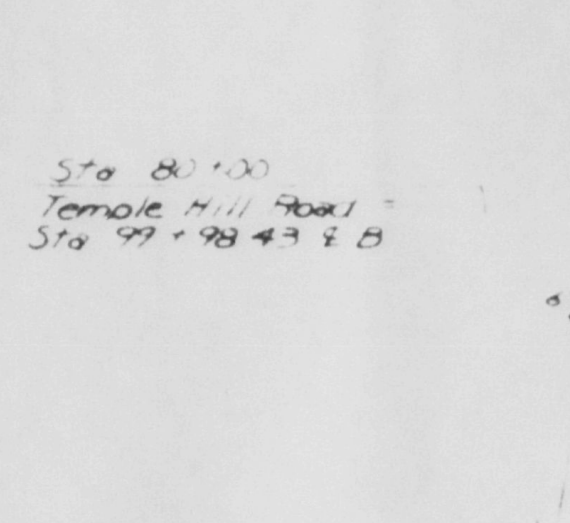 Sta 80+00
Temple Hill Road =
Sta 99+98 43 ℄ B